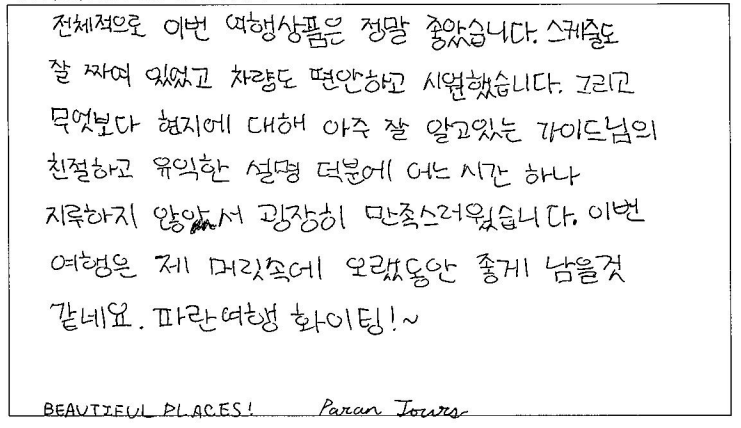 전체적으로 이번 여행상품은 정말 좋았습니다. 스케쥴도
잘 짜여 있었고 차량도 편안하고 시원했습니다. 그리고
무엇보다 현지에 대해 아주 잘 알고있는 가이드님의
친절하고 유익한 설명 덕분에 어느 시간 하나
지루하지 않아서 굉장히 만족스러웠습니다. 이번
여행은 제 머릿속에 오랫동안 좋게 남을것
같네요. 파란여행 화이팅!~
BEAUTIFUL PLACES! Paran Tours